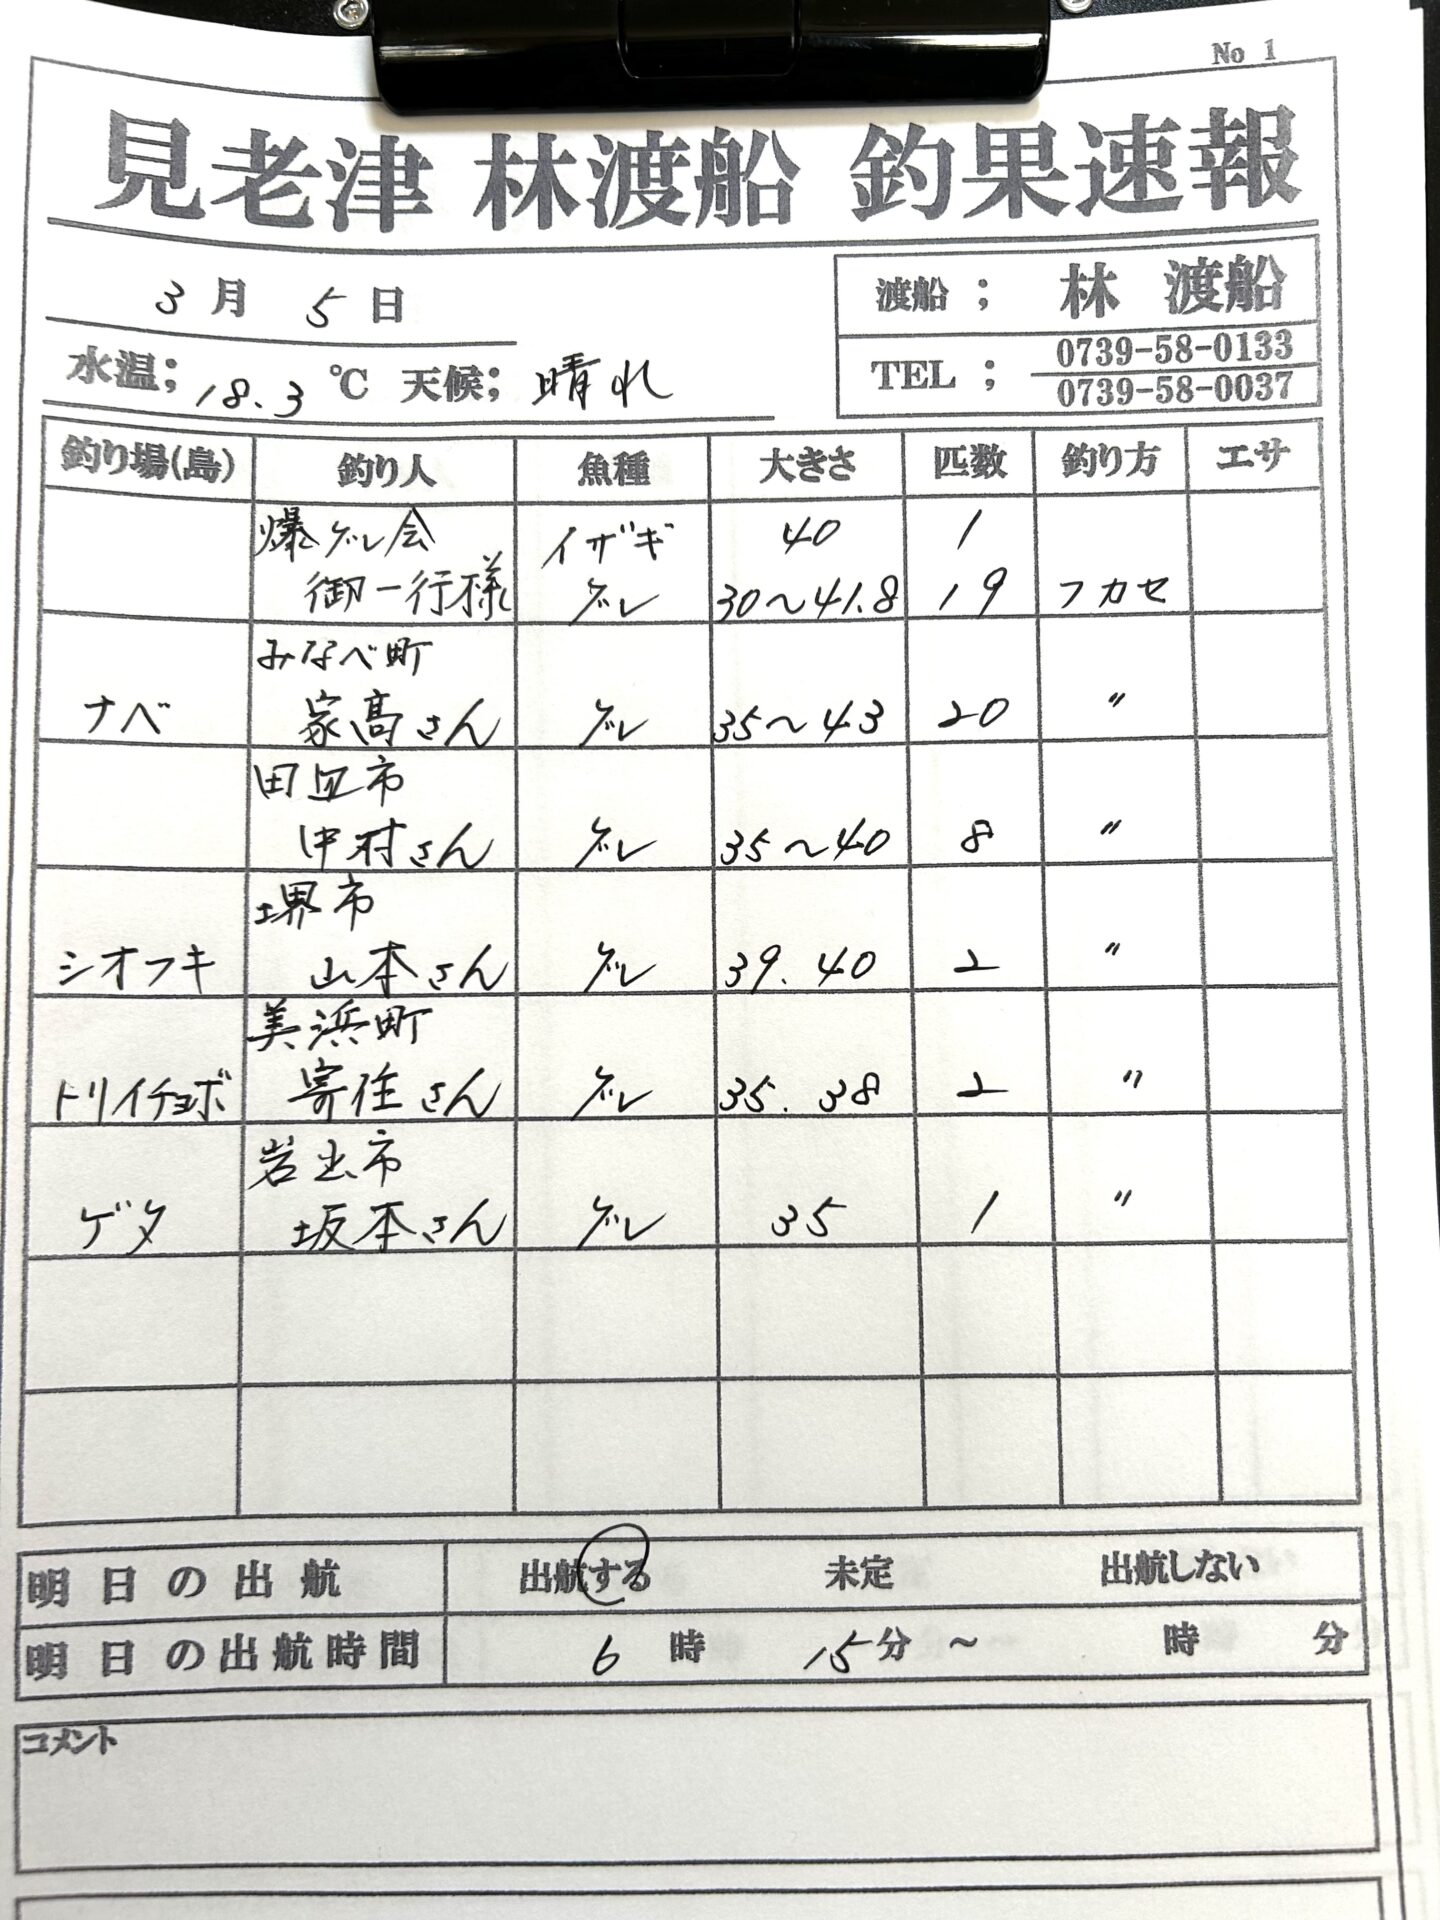 No 1
見老津 林渡船 釣果速報
3月 5日
渡船 ; 林 渡船
水温; 18.3 ℃ 天候; 晴れ
TEL ; 0739-58-0133
0739-58-0037
釣り場(島) 釣り人 魚種 大きさ 匹数 釣り方 エサ
爆グレ会 イサギ 40 1
御一行様 グレ 30〜41.8 19 フカセ
みなべ町
ナベ 家高さん グレ 35〜43 20 〃
田辺市
中村さん グレ 35〜40 8 〃
堺市
シオフキ 山本さん グレ 39.40 2 〃
美浜町
トリイチョボ 寄住さん グレ 35.38 2 〃
岩出市
ゲタ 坂本さん グレ 35 1 〃
明日の出航 出航する 未定 出航しない
明日の出航時間 6 時 15分 〜 時 分
コメント